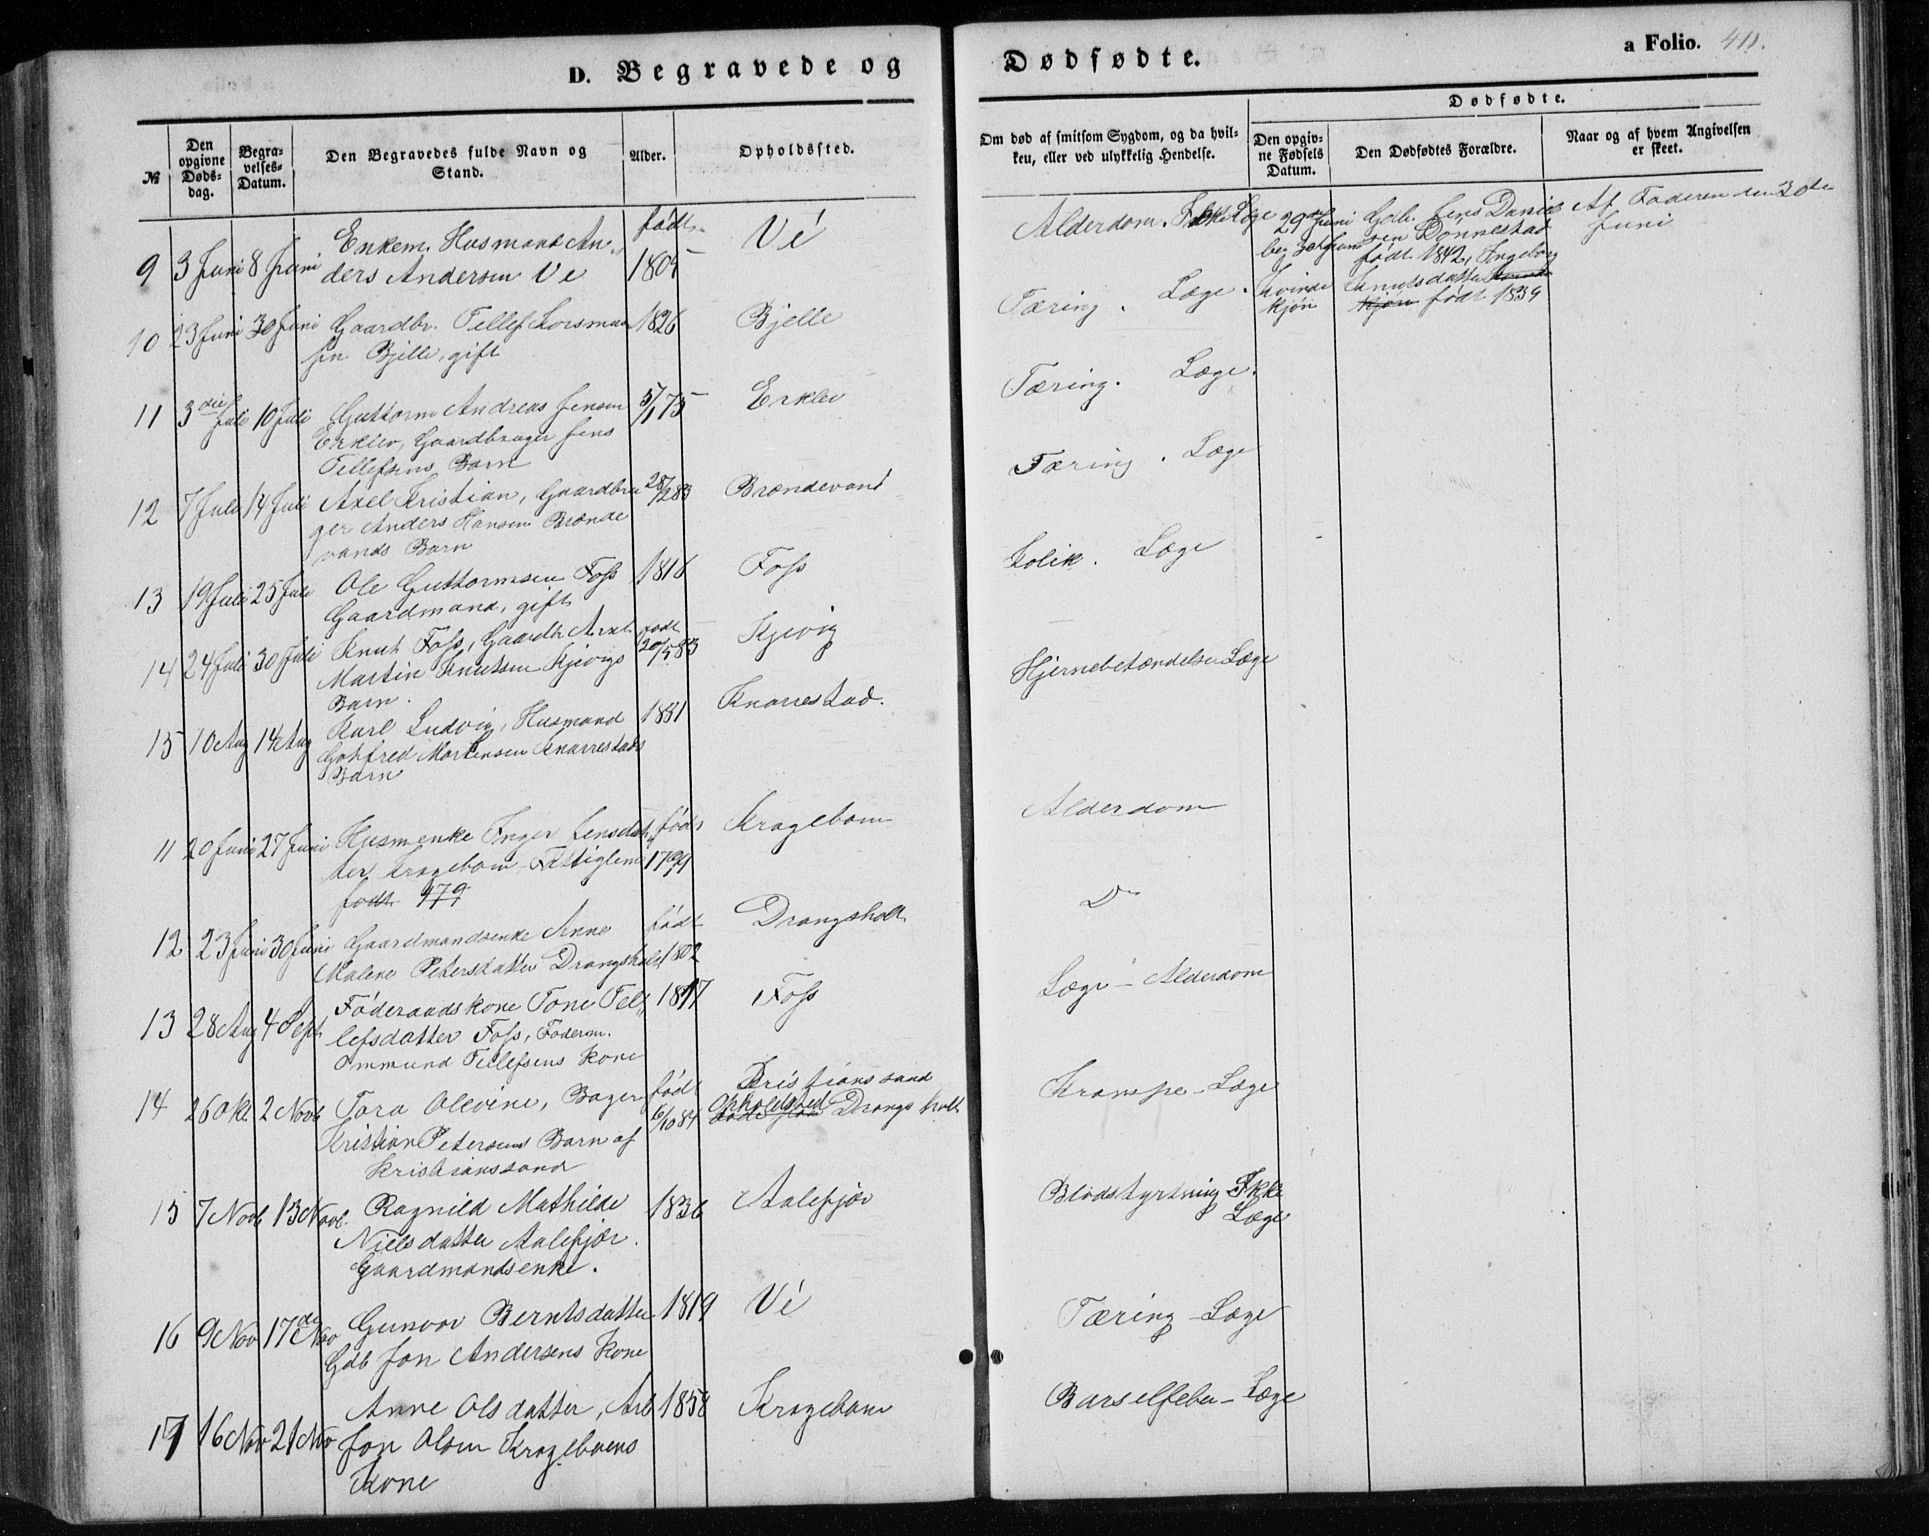 D. Begravede og Dødfødte.
a Folio. 411.
№
Den opgivne Døds-dag.
Begra-velses-Datum.
Den Begravedes fulde Navn og Stand.
Alder.
Opholdssted.
Om død af smitsom Sygdom, og da hvil-ken, eller ved ulykkelig Hendelse.
Dødfødte.
Den opgiv-ne Fødsels Datum.
Den Dødfødtes Forældre.
Naar og af hvem Angivelsen er skeet.
9 3 Juni 8 Juni Enkem. Husmand An-
ders Andersen Ve
født 1805 Vé
Alderdom. Ikke Læge
29 Juni
beg 30te Juni
Kvinde
kjön
Gbr. Jens Daniel
sen Donnestad
født 1842, Ingeborg
Knutsdatter
kjön født 1839
Af Faderen den 30te
Juni
10 23 Juni 30 Juni Gaardbr. Tellef
sen Bjelle, gift
1826 Bjelle
Tæring. Læge.
11 3die Juli 10 Juli Guttorm Andreas Jensen
Erklev, Gaardbruger Jens
Tellefsens Barn
5/1 75 Erklev
Tæring. Læge.
12 7 Juli 14 Juli Axel Kristian, Gaardbru
ger Anders Hansen Brænde
vands Barn
28/2 83 Brændevand
Tæring. Læge
13 19 Juli 25 Juli Ole Guttormsen Foss
Gaardmand, gift
1816 Foss
Kolik. Læge
14 24 Juli 30 Juli Knut Foss, Gaardbr Axel
Martin Knutsen Kjevigs
Barn.
født 20/5 83 Kjevig
Hjernebetændelse Læge
15 10 Aug 14 Aug Karl Ludvig, Husmand
Gotfred Mortensen Knarrestads
Barn
1881 Knarrestad.
11 20 Juni 27 Juni Husmenke Inger Jensdat
ter Kragebom Fattiglem
født 179
født 1799 Kragebom
Alderdom
12 23 Juni 30 Juni Gaardmandsenke Anne
Malene Petersdatter Drangsholt
født 1802 Drangsholt
Do
13 28 Aug 4 Sept Föderaadskone Tone Tel
lefsdatter Foss, Föderm.
Ommund Tellefsens Kone
1817 Foss
Læge - Alderdom
14 26 Okt. 2 Novb Tora Olevine, Bager
Kristian Petersens Barn af
Kristianssand
født 6/10 84 Kristianssand
Opholdsted Drangsholt
Krampe - Læge
15 7 Novb 13 Novb. Ragnild Mathilde
Nielsdatter Aalefjær.
Gaardmandsenke.
1836 Aalefjær
Blodstyrtning Ikke
Læge
16 9 Nov 17de Nov Gunvor Berntsdatter
Gdb Jon Andersens Kone
1819 Vé
Tæring - Læge
17 16 Nov 21 Nov Anne Olsdatter, Arb
Jon Olsen Krageboens
Kone
1858 Kragebom
Barselfeber - Læge